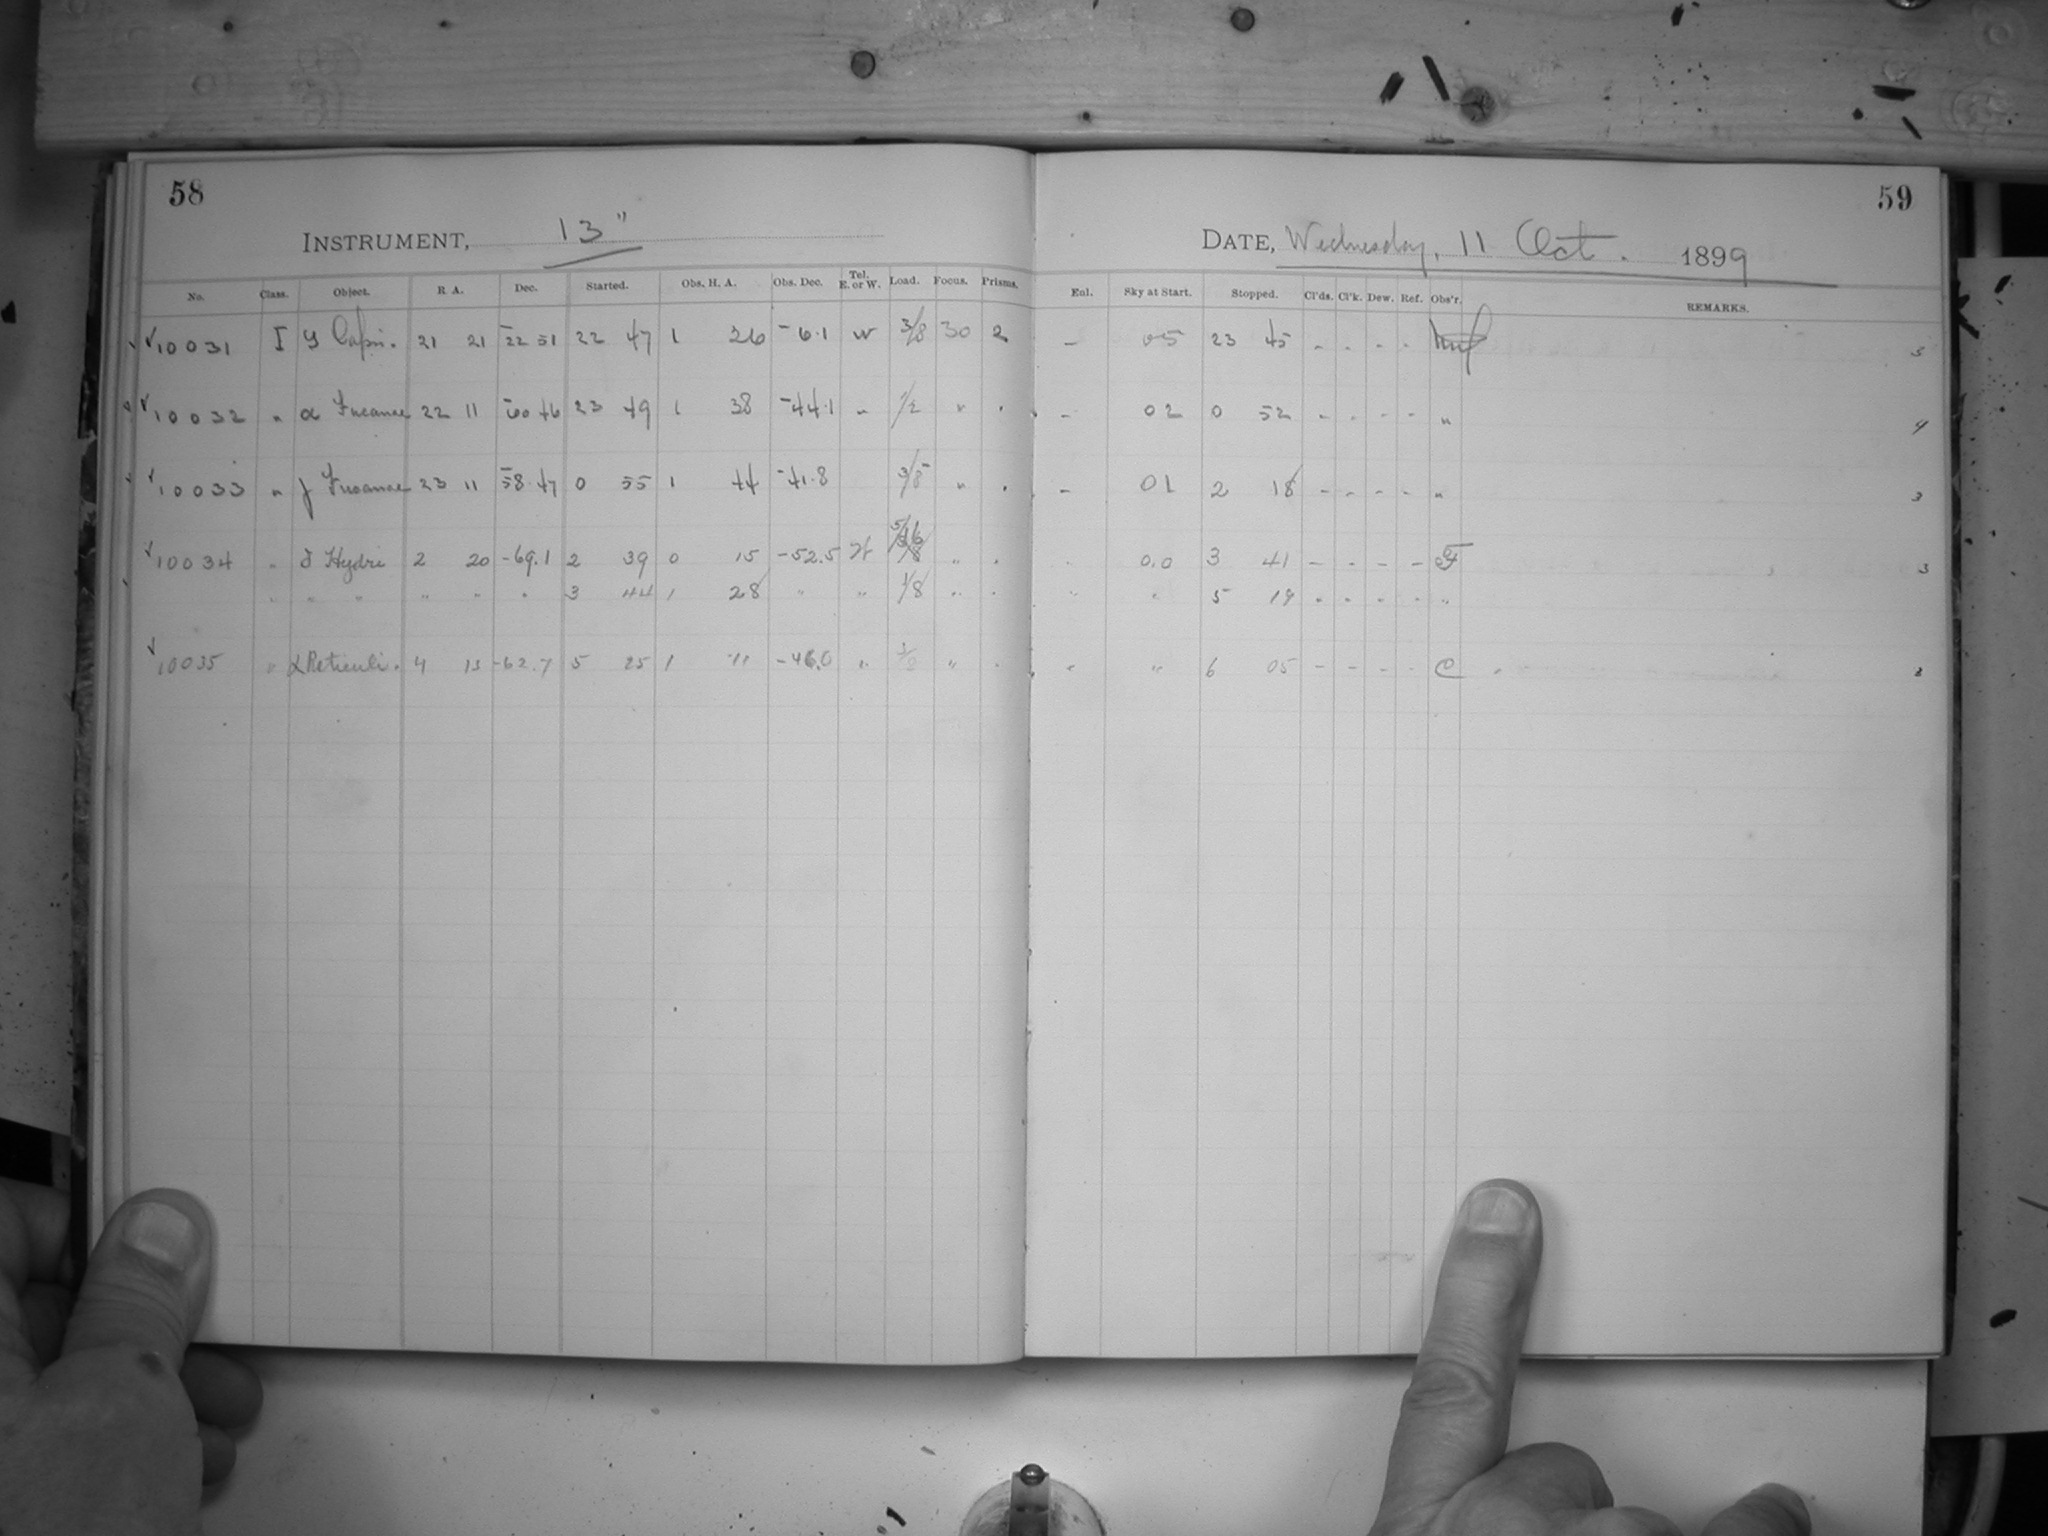 58
INSTRUMENT, 13"
No. Class. Object. R A. Dec. Started. Obs. H. A. Obs. Dec. Tel. E. or W. Load. Focus. Prisms.
√10031 I Capri. 21 21 -22 51 22 47 1 26 -6.1 W 3/8 30 2
√10032 " α Tucanae 22 11 -60 46 23 49 1 38 -44.1 " 1/2 " "
√10033 " γ Tucanae 23 11 -58 47 0 55 1 44 -41.8 3/8 " "
√10034 " δ Hydri 2 20 -69.1 2 39 0 15 -52.5 W 5/16 " "
" " " " " " 3 44 1 28 " " 1/8 " "
√10035 " α Reticuli. 4 13 -62.7 5 25 1 11 -46.0 " 1/2 " "
59
DATE, Wednesday, 11 Oct. 1899
Enl. Sky at Start. Stopped. Cl'ds. Cl'k. Dew. Ref. Obs'r. REMARKS.
- 05 23 45 - - - - 5
- 02 0 52 - - - - " 4
- 01 2 18 - - - - " 3
" 0.0 3 41 - - - - F 3
" " 5 19 - - - - "
" " 6 05 - - - - C